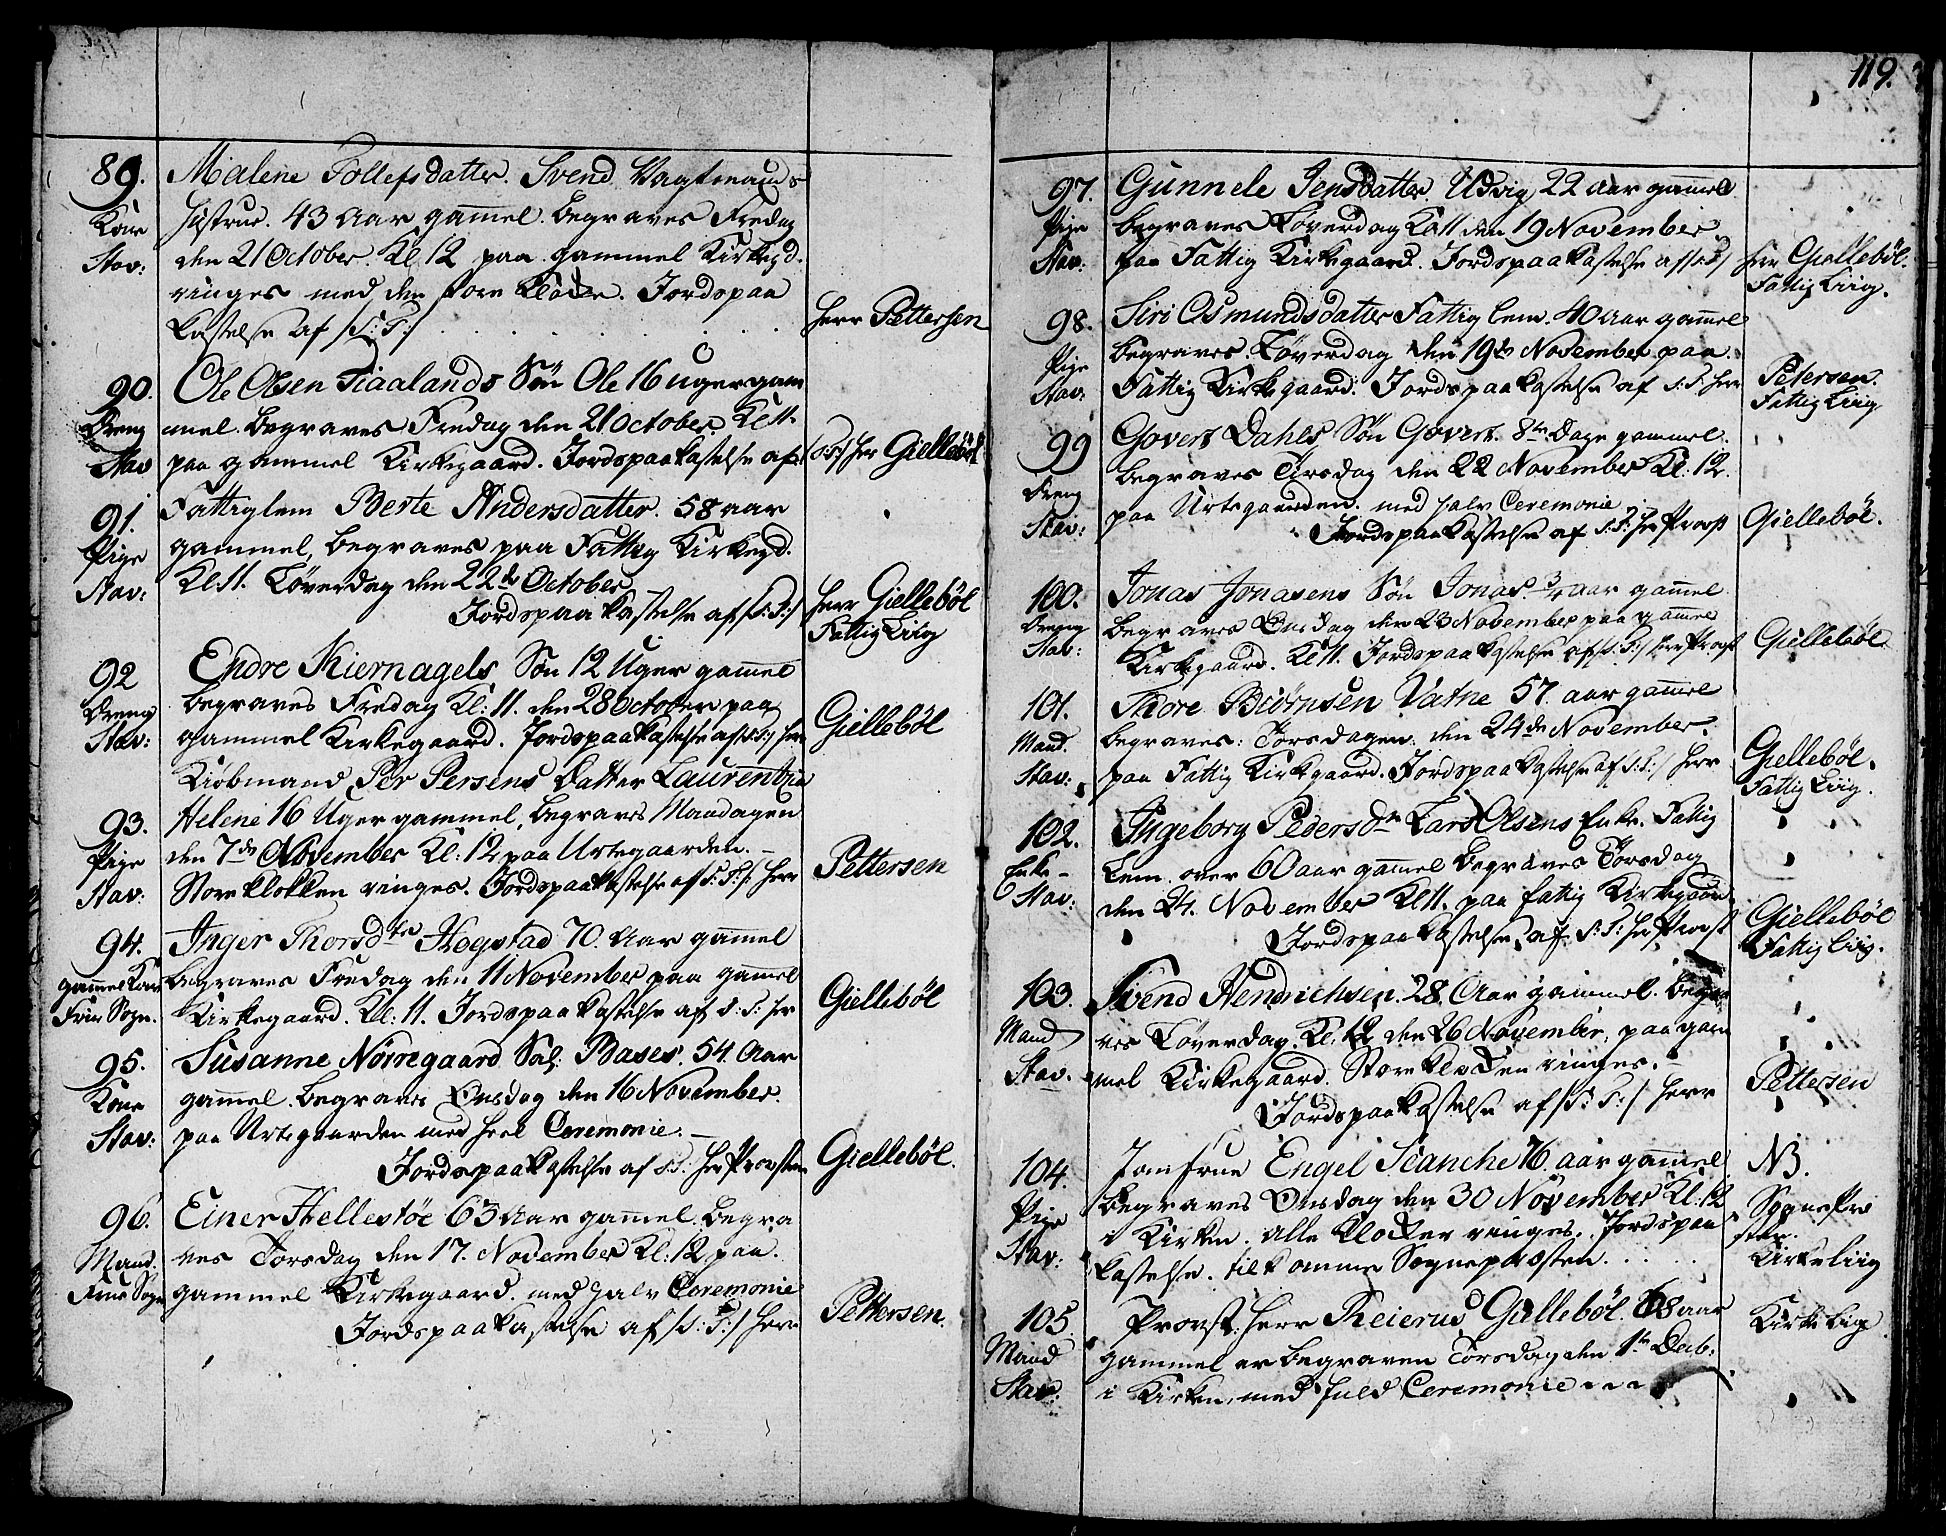 119.
89. Malene Tollefsdatter. Svend Vagtmands
Kone Hustrue. 43 Aar gam̄el. begraves Fredag
Stav: den 21 October. Kl. 12 paa gammel Kirkegd.
ringes med den store Klocke. Jordspaa
kastelse af /S: T:/ Herr Pettersen
90. Ole Olsen Tiaalands Søn Ole 16 uger gam
Dreng mel. begraves Fredag den 21 October Kl 11.
Stav paa gammel Kirkegaard. Jordspaakastelse af /S:T:/ Her Giellebøl
91. Fattiglem Berte Andersdatter. 58 aar
Pige gammel, begraves paa Fattig Kirkegd.
Stav: Kl: 11. Løverdag den 22de October
Jordspaakastelse af /S: T:/ Herr Giellebøl
Fattig Liig
92 Endre Kiernagels Søn 12 Uger gam̄el
Dreng begraves Fredag Kl: 11. den 28 October paa
Stav: gammel Kirkegaard. Jordspaakastelse af /S:T:/ Herr Giellebøl
Kiøbmand Per Persens Datter Laurentzia
93. Helene 16 Uger gammel, begraves Mandagen
Pige den 7de November Kl: 12 paa Urtegaarden. –
Stav: Store klokken ringes. Jordspaakastelse af S: T:/ Herr Pettersen
94. Inger Thorsdtr Hogstad 70. Aar gam̄el
gam̄el Kone begraves Fredag den 11 November paa gam̄el
Frue Sogn. Kirkegaard. Kl: 11. Jordspaakastelse af S: T: Her Giellebøl
95. Susanne Nørregaard Sal. Bases. 54. Aar
Kone gam̄el. begraves Onsdag den 16 November
Stav: paa Urtegaarden med heel Ceremonie. –
Jordspaakastelse af S:T: Her Provsten Giellebøl.
96. Einer Hellestøe 63 Aar gam̄el. begra
Mand. ves Torsdag den 17. November Kl: 12 paa.
Frue Sogn gammel Kirkegaard. med halv Ceremonie
Jordspaakastelse af /S: T:/ Herr Pettersen.
97. Gunnele Jensdatter. Udvig 22 aar gam̄el
Pige begraves Løverdag Kl 11 den 19 November
Stav: paa Fattig Kirkegaard. Jordspaakastelse af /S:T:/ Herr Giellebøl.
Fattig Liig.
98. Siri Osmundsdatter Fattig lem. 40 Aar gam̄el
Pige begraves. Løverdag den 19de November paa.
Stav: Fattig Kirkegaard. Jordspaakastelse af S:T: Herr Petersen.
Fattig Liig
99 Govert Dahls Søn Govert. 8te Dage gammel.
Dreng begraves Tirsdag den 22 November Kl: 12.
Stav: paa Urtegaarden. med halv Ceremonie
Jordspaakastelse af S:T: Her Provst Giellebøl.
100. Jonas Jonasens Søn Jonas. 3/4 aar gam̄el
Dreng begraves Onsdag den 23 November paa gam̄el
Stav: Kirkegaard. Kl 11. Jordspaakastelse af /S:T:/ Herr Provst Giellebøl
101. Thore Biørnsen Vatne 57. aar gam̄el
Mand. begraves: Torsdagen. den 24de November.
Stav: paa Fattig Kirkegaard. Jordspaakastelse af S:T:/ Herr Giellebøl.
Fattig Liig.
102. Ingeborg Pedersdtr Lars Olsens Enke. Fattig
Enke – Lem. over 60 aar gam̄el begraves Torsdag
Stav: den 24. November Kl 11. paa fattig Kirkegaard
Jordspaakastelse af S:T: Her Provst Giellebøl
Fattig Liig.
103. Svend Hendrichsen. 28. Aar gammel. begra
Mand ves Løverdag. Kl. 12 den 26 November, paa gam
Stav. mel Kirkegaard. Store klocken ringes. –
Jordspaakastelse af /S: T:/ Herr Pettersen
104. Jomfrue Engel Scanche 76. aar gam̄el NB.
Pige begraves Onsdag den 30 November Kl: 12 Sognepre
Stav: i Kirken. alle klocker ringes. Jordspaa sten.
kastelse. tilkomme Sognepresten. Kirke liig
105 Provst. Herr Reierus Giellebøl. 68 aar Kirke Lig
Mand gammel er begraven Torsdag den 1te Decb:
Stav: i Kirken, med fuld Ceremonie